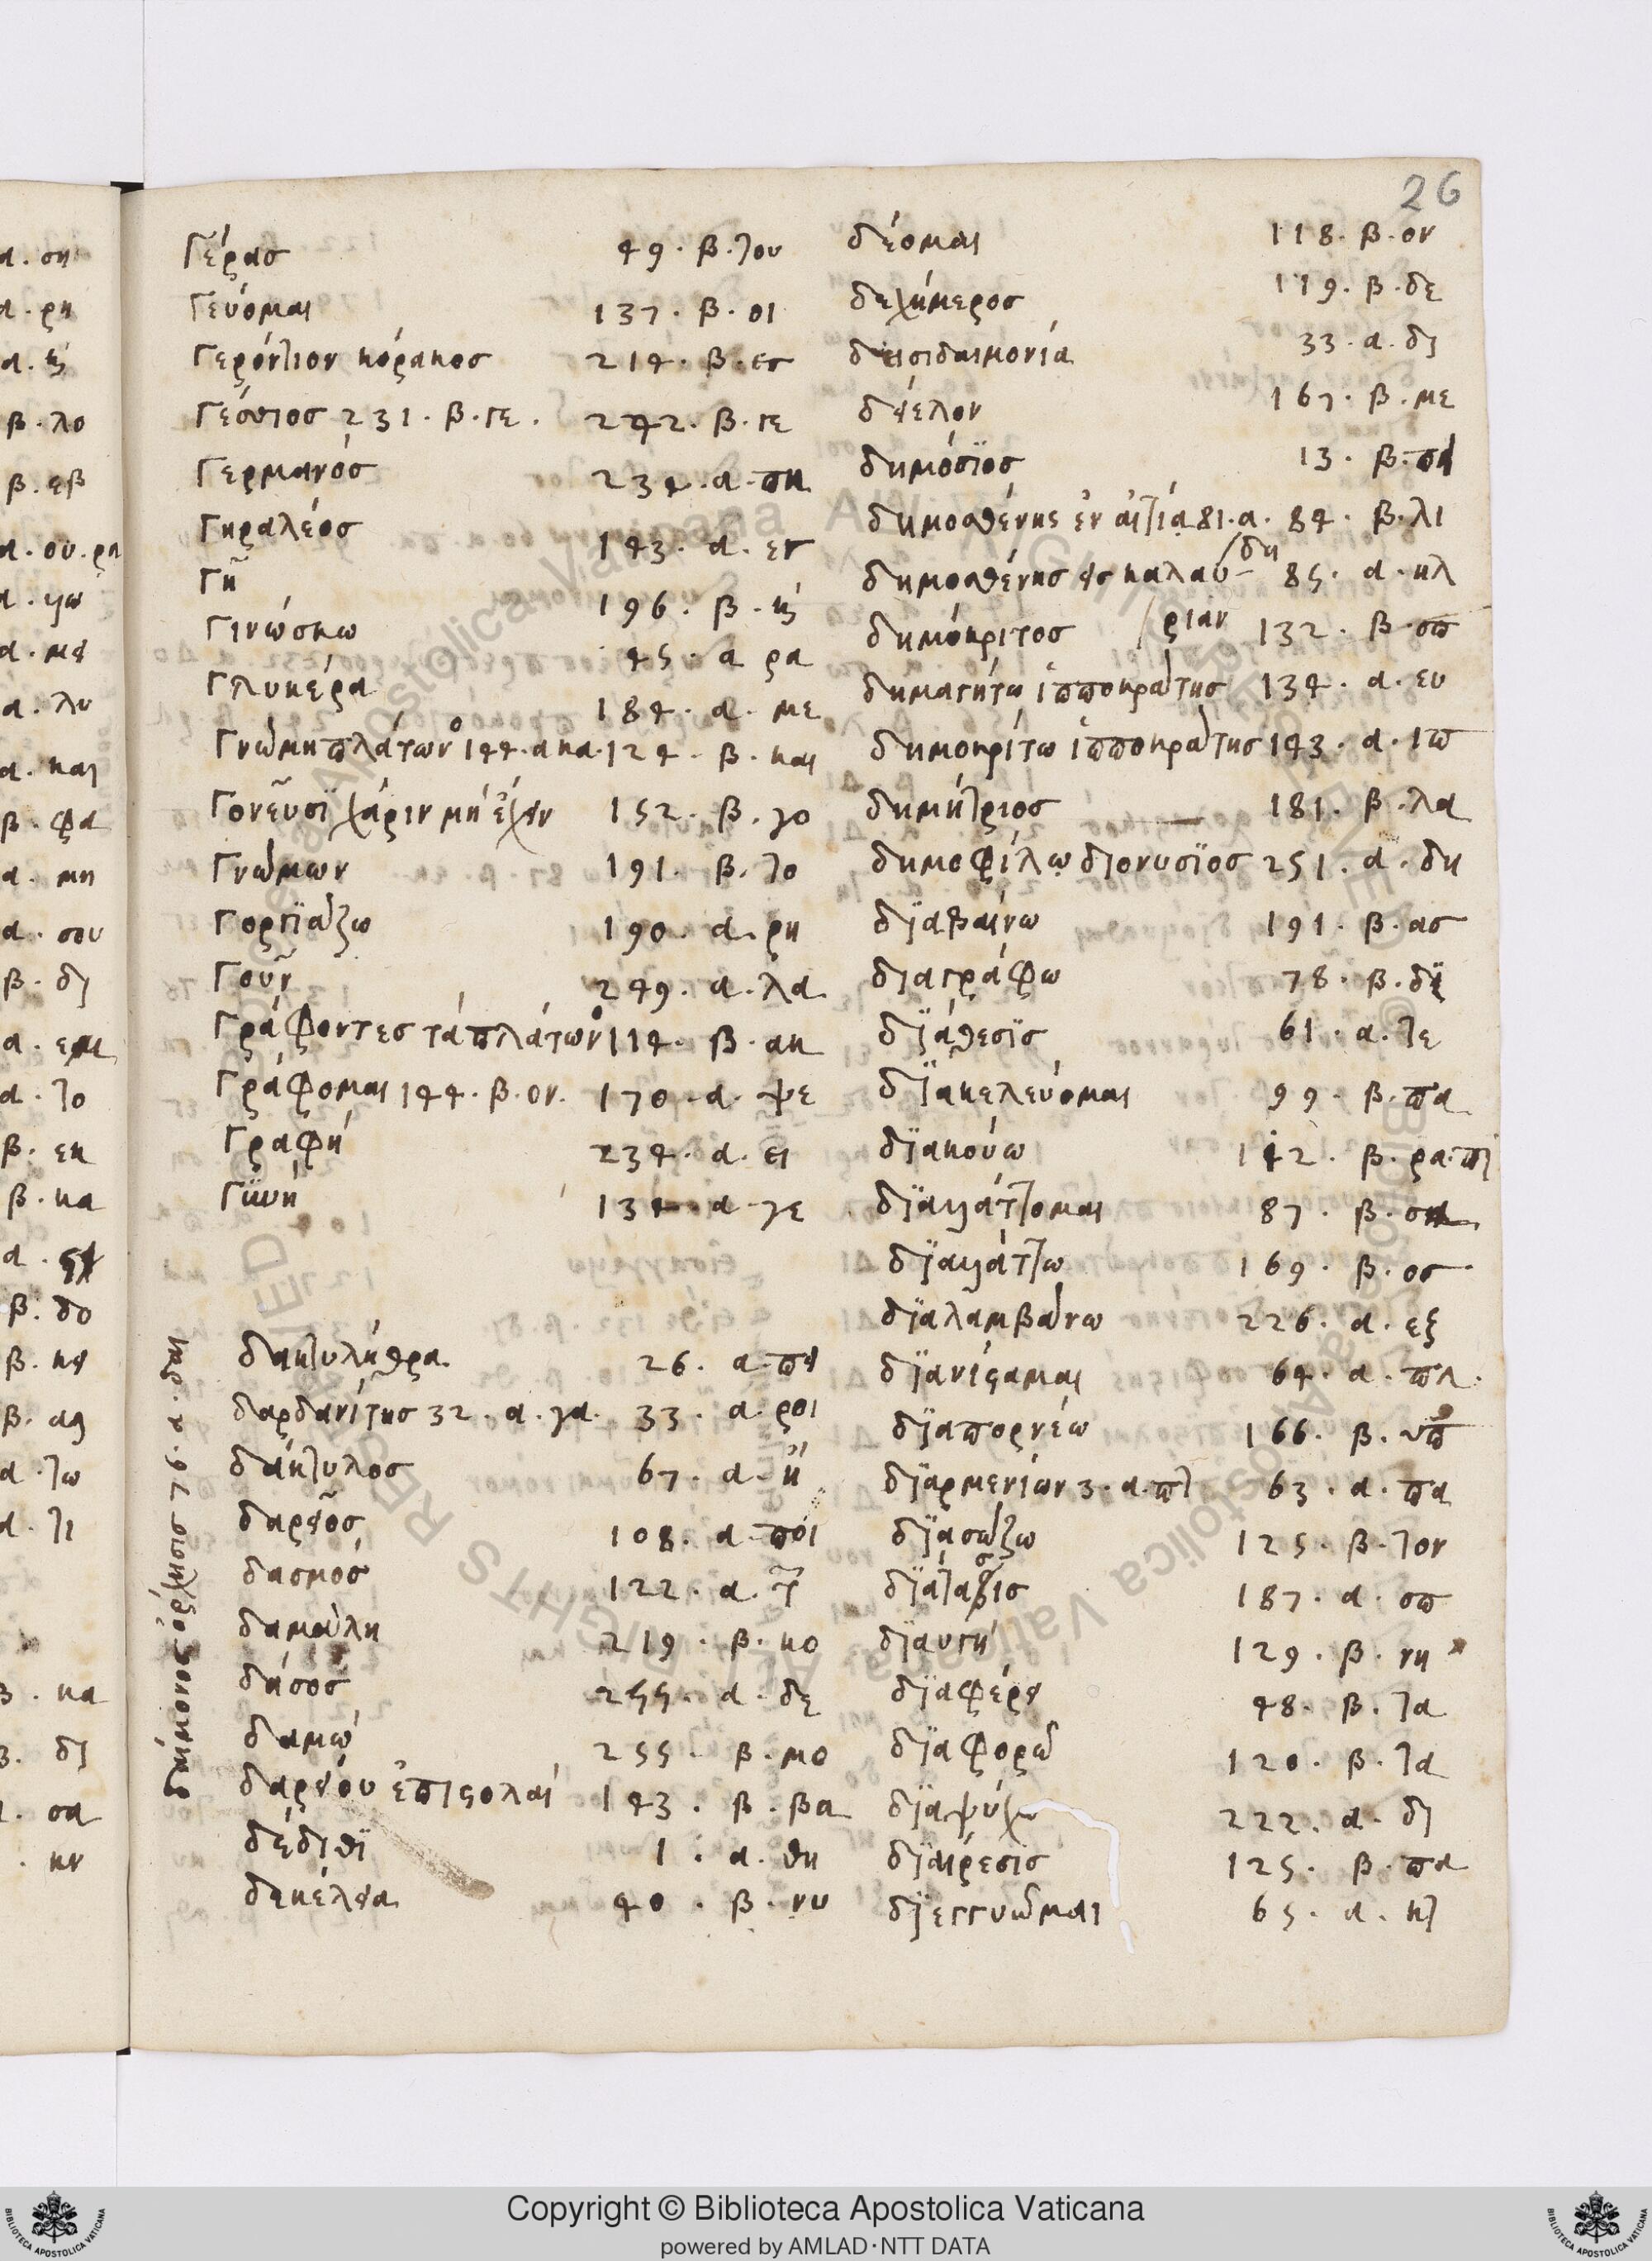 26
Γέρασ 49. β. του
Γεύομαι 137. β. οι
Γερόντιον κόρακοσ 214. β. εσ
Γέσσιοσ 231. β. γε. 242. β. γε
Γερμανόσ 234. α. πη
Γηραλέοσ 143. α. εγ
Γῆ 196. β.
Γινώσκω 45. α ρα
Γλυκέρα 184. α. με
Γνώμη πλάτωνο 144. α κα. 124. β. και
Γονεῦσϊ χάριν μὴ ἔχειν 152. β. γο
Γνώμων 191. β. το
Γοργϊάζω 190. α. ρη
Γοῦν 249. α. λα
Γράφοντεσ τὰ πλάτωνο 114. β. ακ
Γράφομαι 144. β. ον. 170. α. ψε
Γραφή 234. α. ει
134 α γε
δακτυλήθρα 26. α πει
δαρδανίτησ 32. α. γα. 33. α ροι
δάκτυλοσ 67. α. ἢ
δαρεῖοσ 108. α ποι
δασμόσ 122. α.
δαμάλη 219. β. κο
δάσοσ 255. α. δε
δαμώ 255. β. μο
δαρείου ἐπιστολαί 143. β. βα
δέδιθϊ 1. α. θη
δεκέλεια 40. β. νυ
δήμονοσ ὄρχησισ 76. α. δη
δέομαι 118. β. ον
δεχήμεροσ 119. β. δε
δεισιδαιμονία 33. α. δι
δείελον 167. β. με
δημόσϊοσ 13. β.
δημοσθένησ ἐν αἰτία 81. α. 84. β. λι
δημοσθένησ εἰσ καλαυ- 85. α. κλ
δημόκριτοσ ριαν 132. β. σπ
δημαγήτω ἱπποκράτησ 134. α. ευ
δημοκρίτω ἱπποκράτησ 143. α. ιπ
δημήτριοσ 181. β. λα
δημοφίλῳ διονυσϊοσ 251. α. δη
δϊαβαίνω 191. β. ασ
διαγράφω 78. β. δϊ
δϊάθεσϊσ 61. α. τε
δϊακελεύομαι 99. β. πα
δϊακούω 142. β. ρα. πι
δϊαλλάττομαι 87. β.
δϊαλλάττω 169. β. οσ
δϊαλαμβάνω 226. α. εξ
δϊανίσταμαι 64. α. πλ.
δϊαπορνέω 166. β. υπ
δϊαρμενίων 3. α. πτ 63. α. πα
δϊασώζω 125. β. τον
187. α. σπ
δϊαυγή 129. β. νη
δϊαφέρει 48. β. τα
δϊαφορῶ 120. β. τα
δϊαψύχω 222. α. δι
δϊαιρέσισ 125. β. πα
δϊεγγυῶμαι 65. α. κτ
Copyright © Biblioteca Apostolica Vaticana
powered by AMLAD·NTT DATA